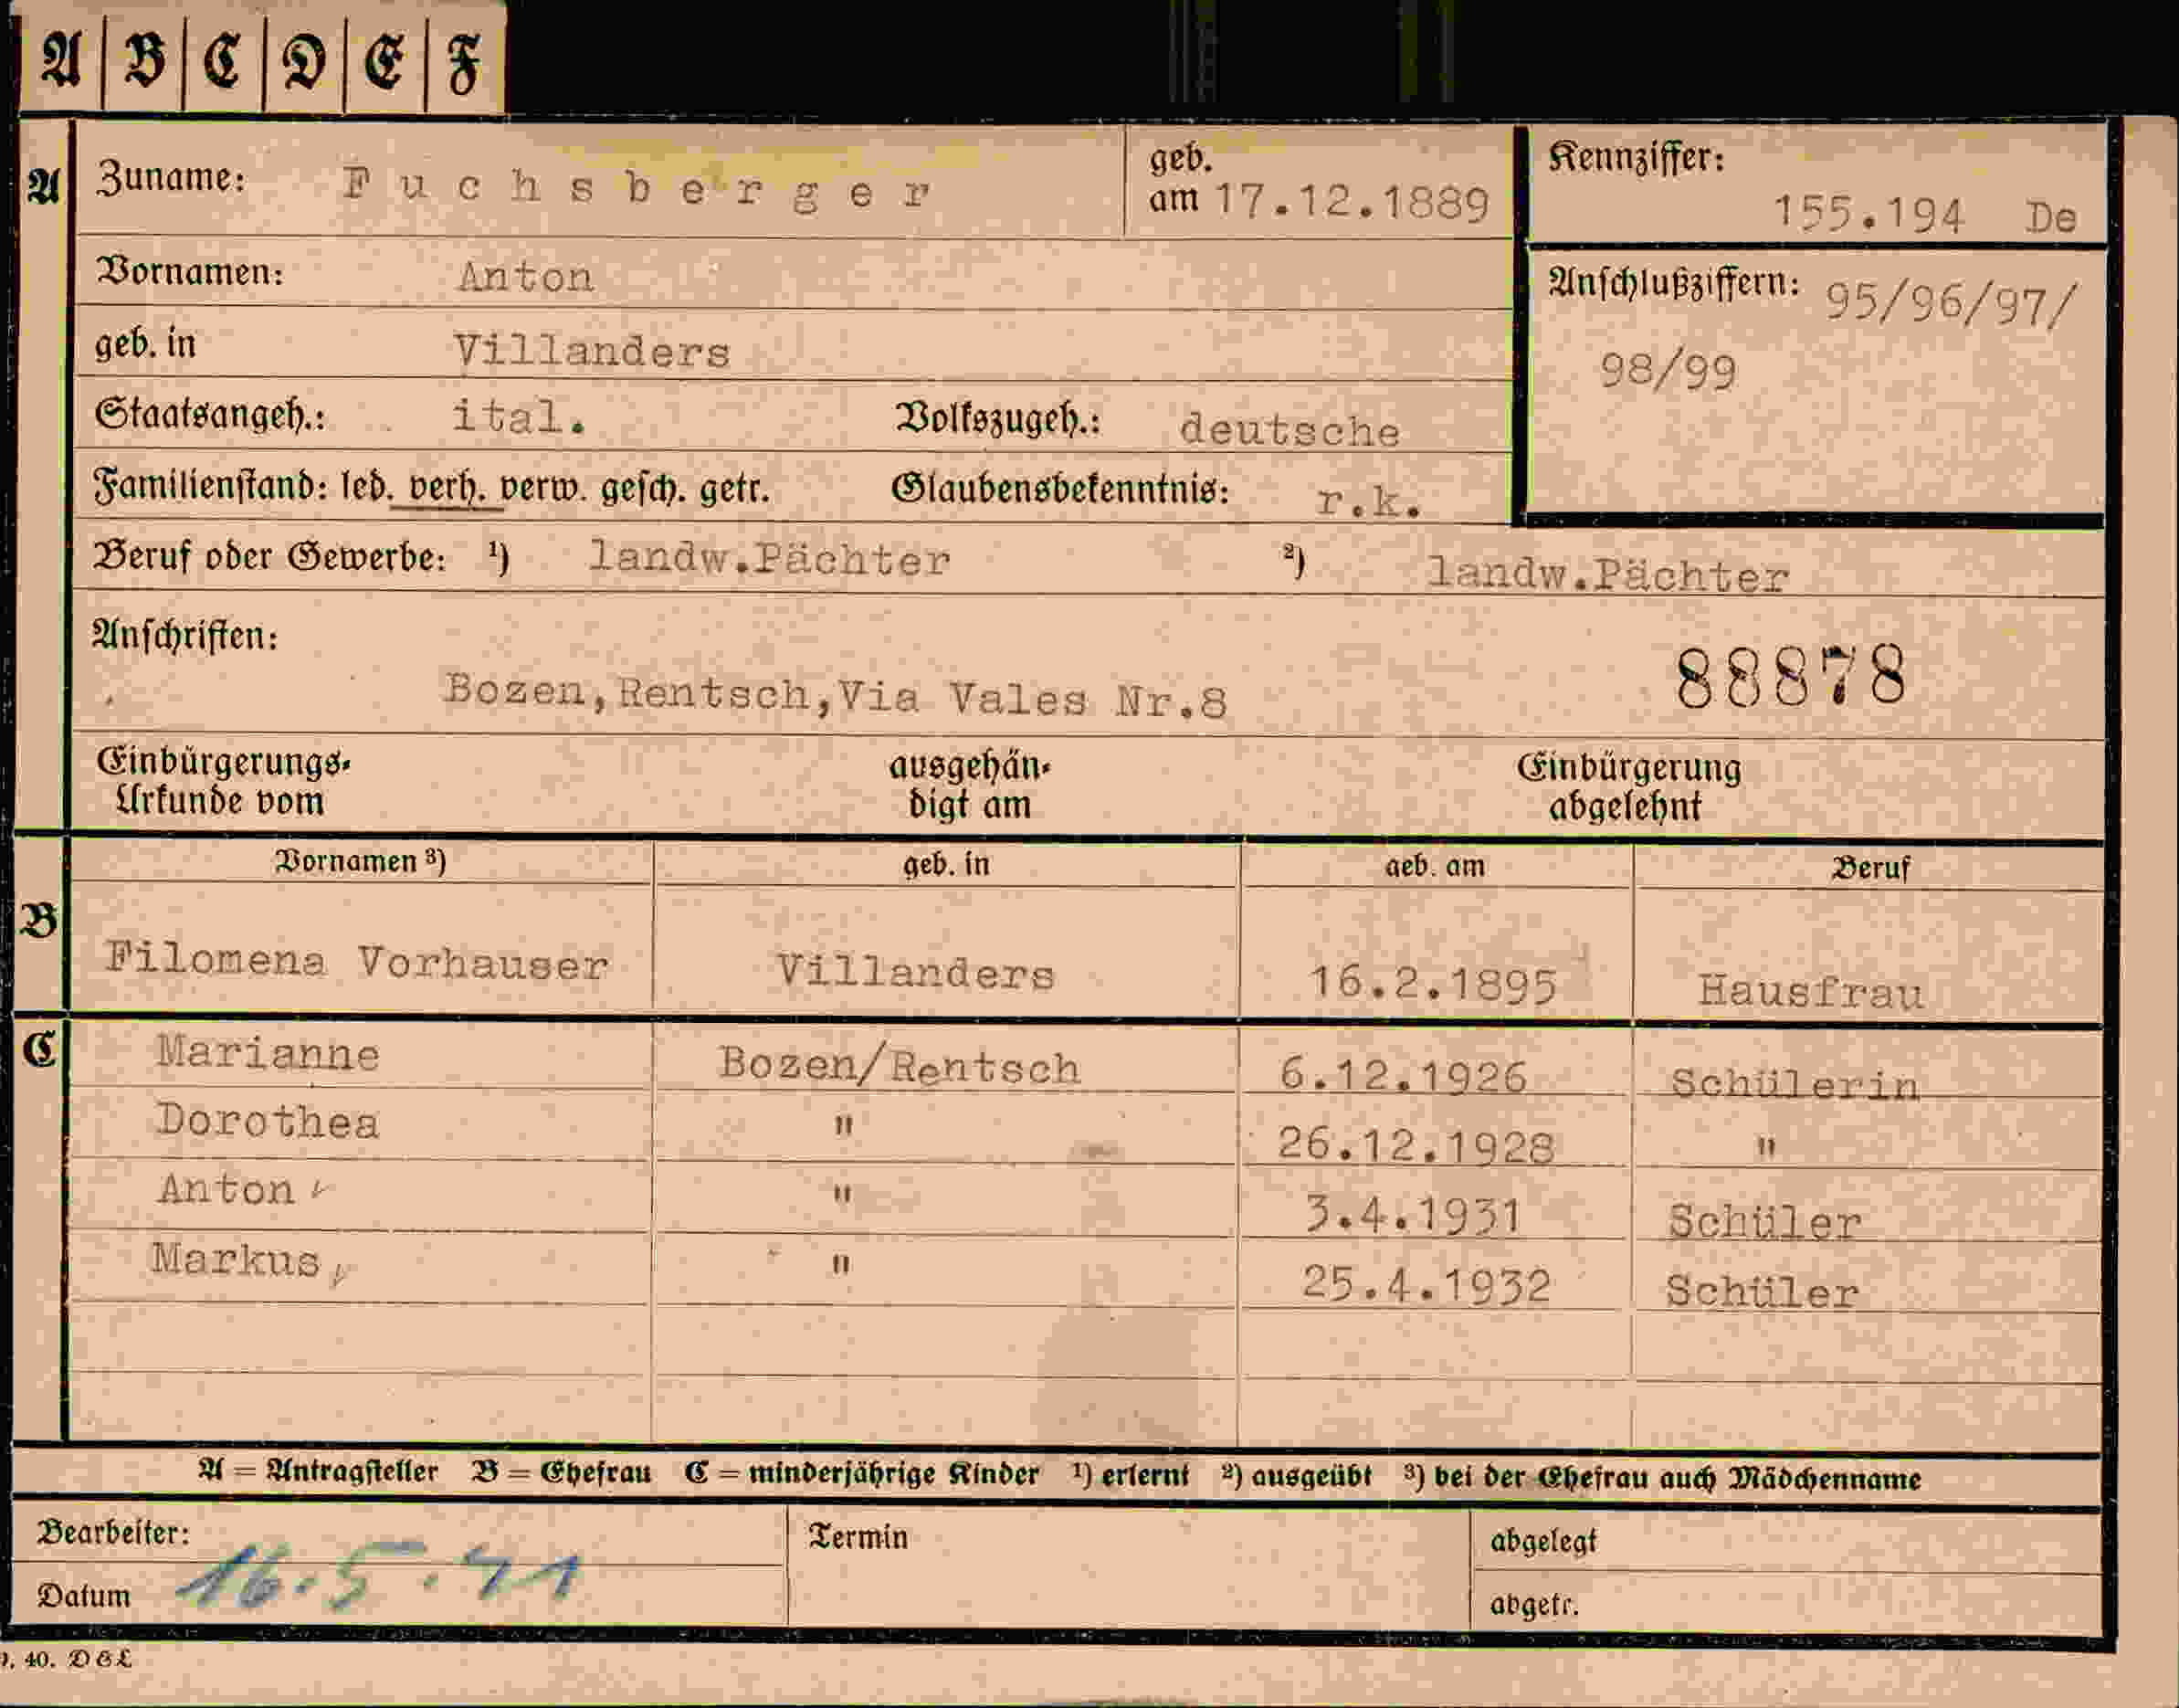 A B C D E F
A Zuname: Fuchsberger geb. am 17.12.1889 Kennziffer: 155.194 De
Vornamen: Anton Anschlußziffern: 95/96/97/
geb. in Villanders 98/99
Staatsangeh.: ital. Volkszugeh.: deutsche
Familienstand: led. verh. verw. gesch. getr. Glaubensbekenntnis: r.k.
Beruf oder Gewerbe: ¹) landw.Pächter ²) landw.Pächter
Anschriften:
Bozen,Rentsch,Via Vales Nr.8 88878
Einbürgerungs- ausgehän- Einbürgerung
Urkunde vom digt am abgelehnt
Vornamen ³) geb. in geb. am Beruf
B Filomena Vorhauser Villanders 16.2.1895 Hausfrau
C Marianne Bozen/Rentsch 6.12.1926 Schülerin
Dorothea " 26.12.1928 "
Anton " 3.4.1931 Schüler
Markus, " 25.4.1932 Schüler
A = Antragsteller B = Ehefrau C = minderjährige Kinder ¹) erlernt ²) ausgeübt ³) bei der Ehefrau auch Mädchenname
Bearbeiter: Termin abgelegt
Datum 16.5.41 abgetr.
40. D&L